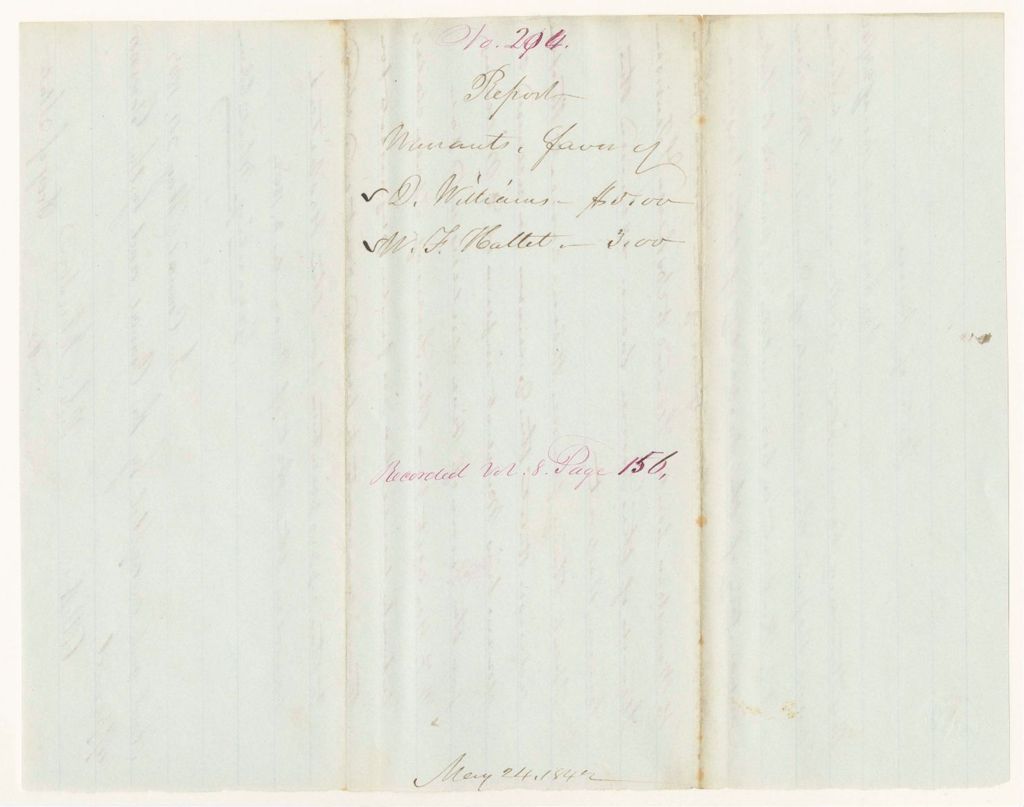 No. 294.
Report
Warrants, favor of
✓ D. Williams - $5.00
✓ W. F. Hallet. - 3.00
Recorded Vol. 8. Page 156,
May 24, 1842